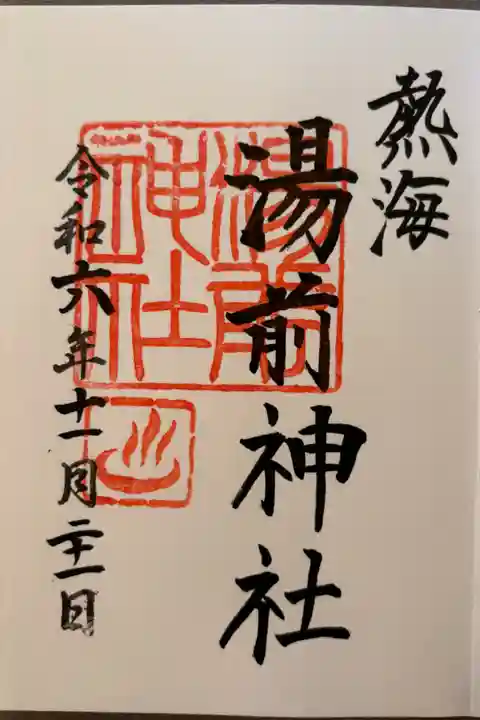 熱海
湯前神社
湯前神社
令和六年十一月二十一日